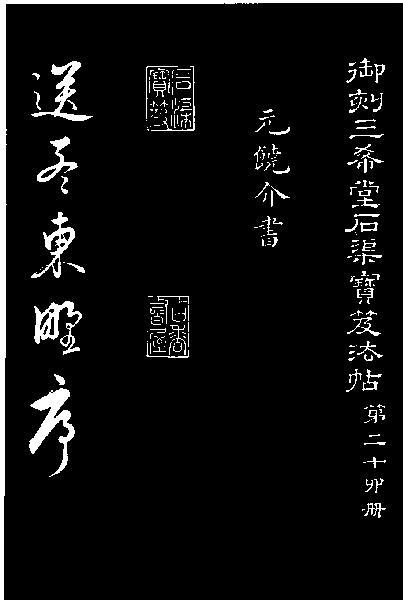 御刻三希堂石渠寶笈法帖 第二十四册
元饒介書
石渠寶笈
送孟東野序